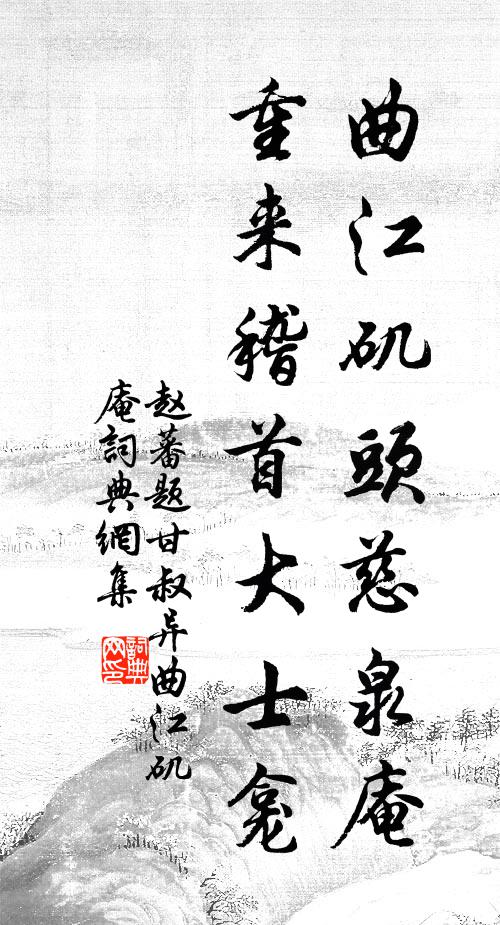 曲江矶頭慈泉庵
重来稽首大士龛
赵蕃题甘叔异曲江矶
庵詞典網集
詞典網印